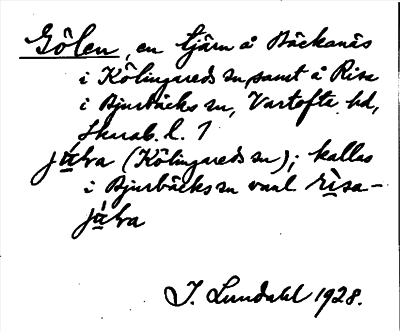 Gölen, en tjärn å Bäckanäs
i Kölingareds sn, samt å Risa
i Bjurbäcks sn, Vartofta hd,
Skarab. l. 1
(Kölingareds sn); kallas
i Bjurbäcks sn vanl
I. Lundahl 1928.